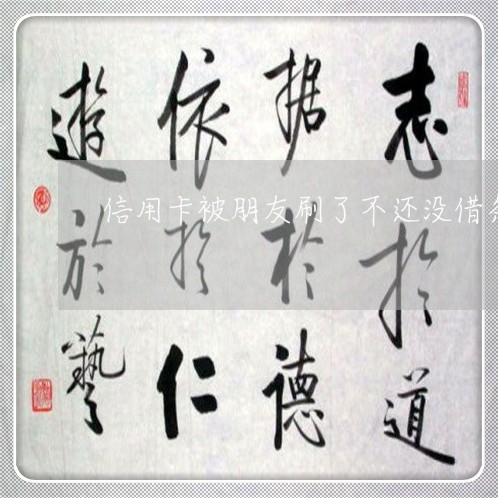 志於道
据於德
依於仁
遊於藝
信用卡被朋友刷了不还没借